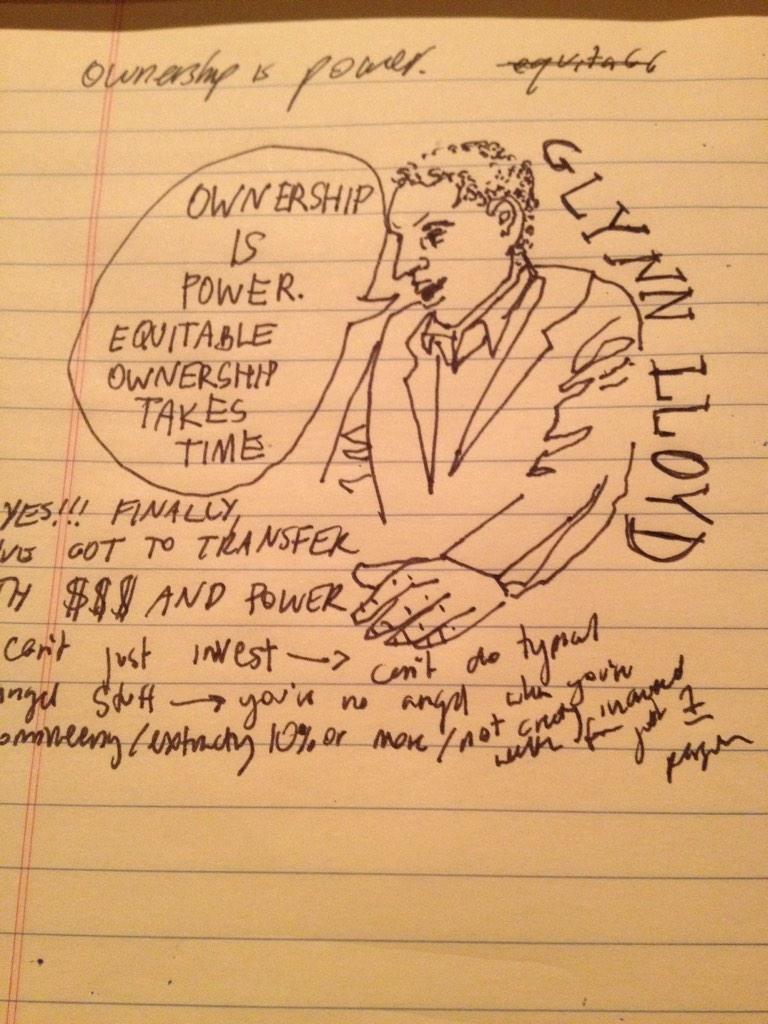 Ownership is power. equitabl
GLYNN LLOYD
OWNERSHIP
IS
POWER.
EQUITABLE
OWNERSHIP
TAKES
TIME
YES!!! FINALLY,
GOT TO TRANSFER
$$$ AND POWER
can't just invest → can't do typical
angel stuff → you're no angel when you're
/extracting 10% or more / not creating increased
wealth for just 1
person